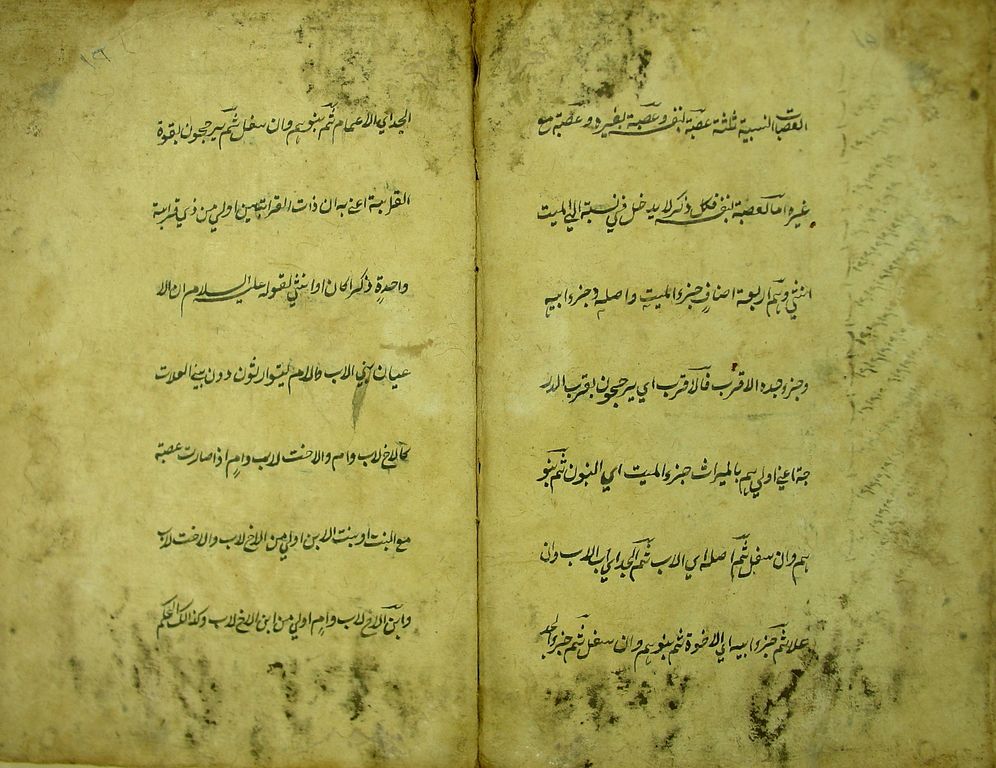 ١٥
العصبات النسبية ثلثة عصبة بنفسه وعصبة بغيره وعصبة مع
غيره اما العصبة بنفسه فكل ذكر لا يدخل في نسبة الى الميت
انثى وهم اربعة اصناف جزء الميت واصله وجزء ابيه
وجزء جده الاقرب فالاقرب اي يرجحون بقرب الدر
جة اعني اوليهم بالميراث جزء الميت اي البنون ثم بنو
هم وان سفل ثم اصله اي الاب ثم الجد اي اب الاب وان
علا ثم جزء ابيه اي الاخوة ثم بنوهم وان سفل ثم جزء
١٦
الجد اي الاعمام ثم بنوهم وان سفل ثم يرجحون بقوة
القرابة اعني به ان ذات القرابتين اولى من ذي قرابة
واحدة ذكرا كان او انثى لقوله عليه السلام ان الا
عيان بني الاب والام يتوارثون دون بني العلات
كالاخ لاب وام والاخت لاب وام اذا صارت عصبة
مع البنت او بنت الابن اولى من الاخ لاب والاخت لاب
وابن الاخ لاب وام اولى من ابن الاخ لاب وكذالك الحكم